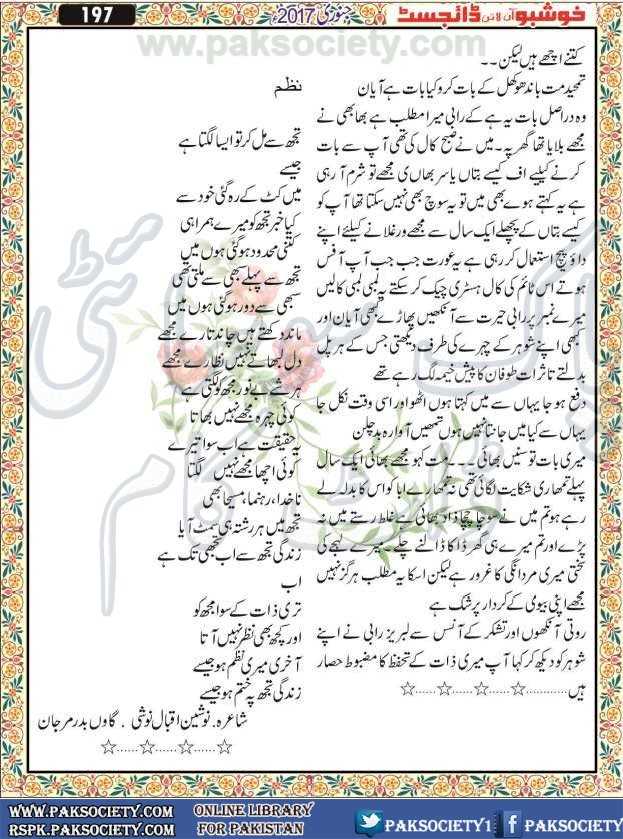 خوشبو آن لائن ڈائجسٹ
جنوری 2017
197
www.paksociety.com
کتنے اچھے ہیں لیکن۔۔
تمہید مت باندھو کھل کے بات کرو کیا بات ہے آیان
وہ دراصل بات یہ ہے کے رابی میرا مطلب ہے بھابھی نے
مجھے بلایا تھا گھر پہ۔ میں نے صبح کال کی تھی آپ سے بات
کرنے کیلیے اف کیسے بتاں یاسر بھای مجھے تو شرم آ رہی
ہے یہ کہتے ہوے بھی میں تو یہ سوچ بھی نہیں سکتا تھا آپ کو
کیسے بتاں کے پچھلے ایک سال سے مجھے ورغلانے کیلئے اپنے
داؤ پیچ استعمال کر رہی ہے یہ عورت جب جب آپ آفس
ہوتے اس ٹائم کی کال ہسٹری چیک کر سکتے یہ لمبی لمبی کالیں
میرے نمبر پر رابی حیرت سے آنکھیں پھاڑے کبھی آیان اور
کبھی اپنے شوہر کے چہرے کی طرف دیکھتی جس کے ہر پل
بدلتے تاثرات طوفان کا پیش خیمہ لگ رہے تھے
دفع ہو جا یہاں سے میں کہتا ہوں اٹھو اور اسی وقت نکل جا
یہاں سے کیا میں جانتا نہیں ہوں تمھیں آوارہ بد چلن
میری بات تو سنیں بھائی۔۔۔ مت کہو مجھے بھائی ایک سال
پہلے تمھاری شکایت لگائی تھی نہ تمھارے ابا کو اس کا بدلہ لے
رہے ہو تم میں نے سوچا چچا ذاد بھائی ہے غلط رستے میں نہ
پڑے اور تم میرے ہی گھر ڈاکا ڈالنے چلے میرے لہجے کی
سختی میری مردانگی کا غرور ہے لیکن اسکا یہ مطلب ہرگز نہیں
مجھے اپنی بیوی کے کردار پر شک ہے
روتی آنکھوں اور تشکر کے آنسں سے لبریز رابی نے اپنے
شوہر کو دیکھ کر کہا آپ میری ذات کے تحفظ کا مضبوط حصار
ہیں............☆......☆......☆......☆
نظم
تجھ سے مل کر تو ایسا لگتا ہے
جیسے
میں کٹ کے رہ گئی خود سے
کیا خبر تجھ کو میرے ہمراہی
کتنی محدود ہو گئی ہوں میں
تجھ سے پہلے بھی سے ملتی تھی
سبھی سے دور ہو گئی ہوں میں
ماند دکھتے ہیں چاند تارے مجھے
دل لبھاتے نہیں نظارے مجھے
ہر شے بے نور مجھ کو لگتی ہے
کوئی چہرہ مجھے نہیں بھاتا
یہ حقیقت ہے اب سوا تیرے
کوئی اچھا مجھے نہیں لگتا
ناخدا، رہنما، مسیحا بھی
تجھ میں ہر رشتہ ہی سمٹ آیا
زندگی تجھ سے اب تجھی تک ہے
اب
تری ذات کے سوا مجھ کو
اور کچھ بھی نظر نہیں آتا
آخری میری نظم ہو جیسے
زندگی تجھ پہ ختم ہو جیسے
شاعرہ۔ نوشین اقبال نوشی ۔ گاوں بدر مرجان
☆......☆......☆......☆
WWW.PAKSOCIETY.COM
RSPK.PAKSOCIETY.COM
ONLINE LIBRARY
FOR PAKISTAN
PAKSOCIETY1
PAKSOCIETY